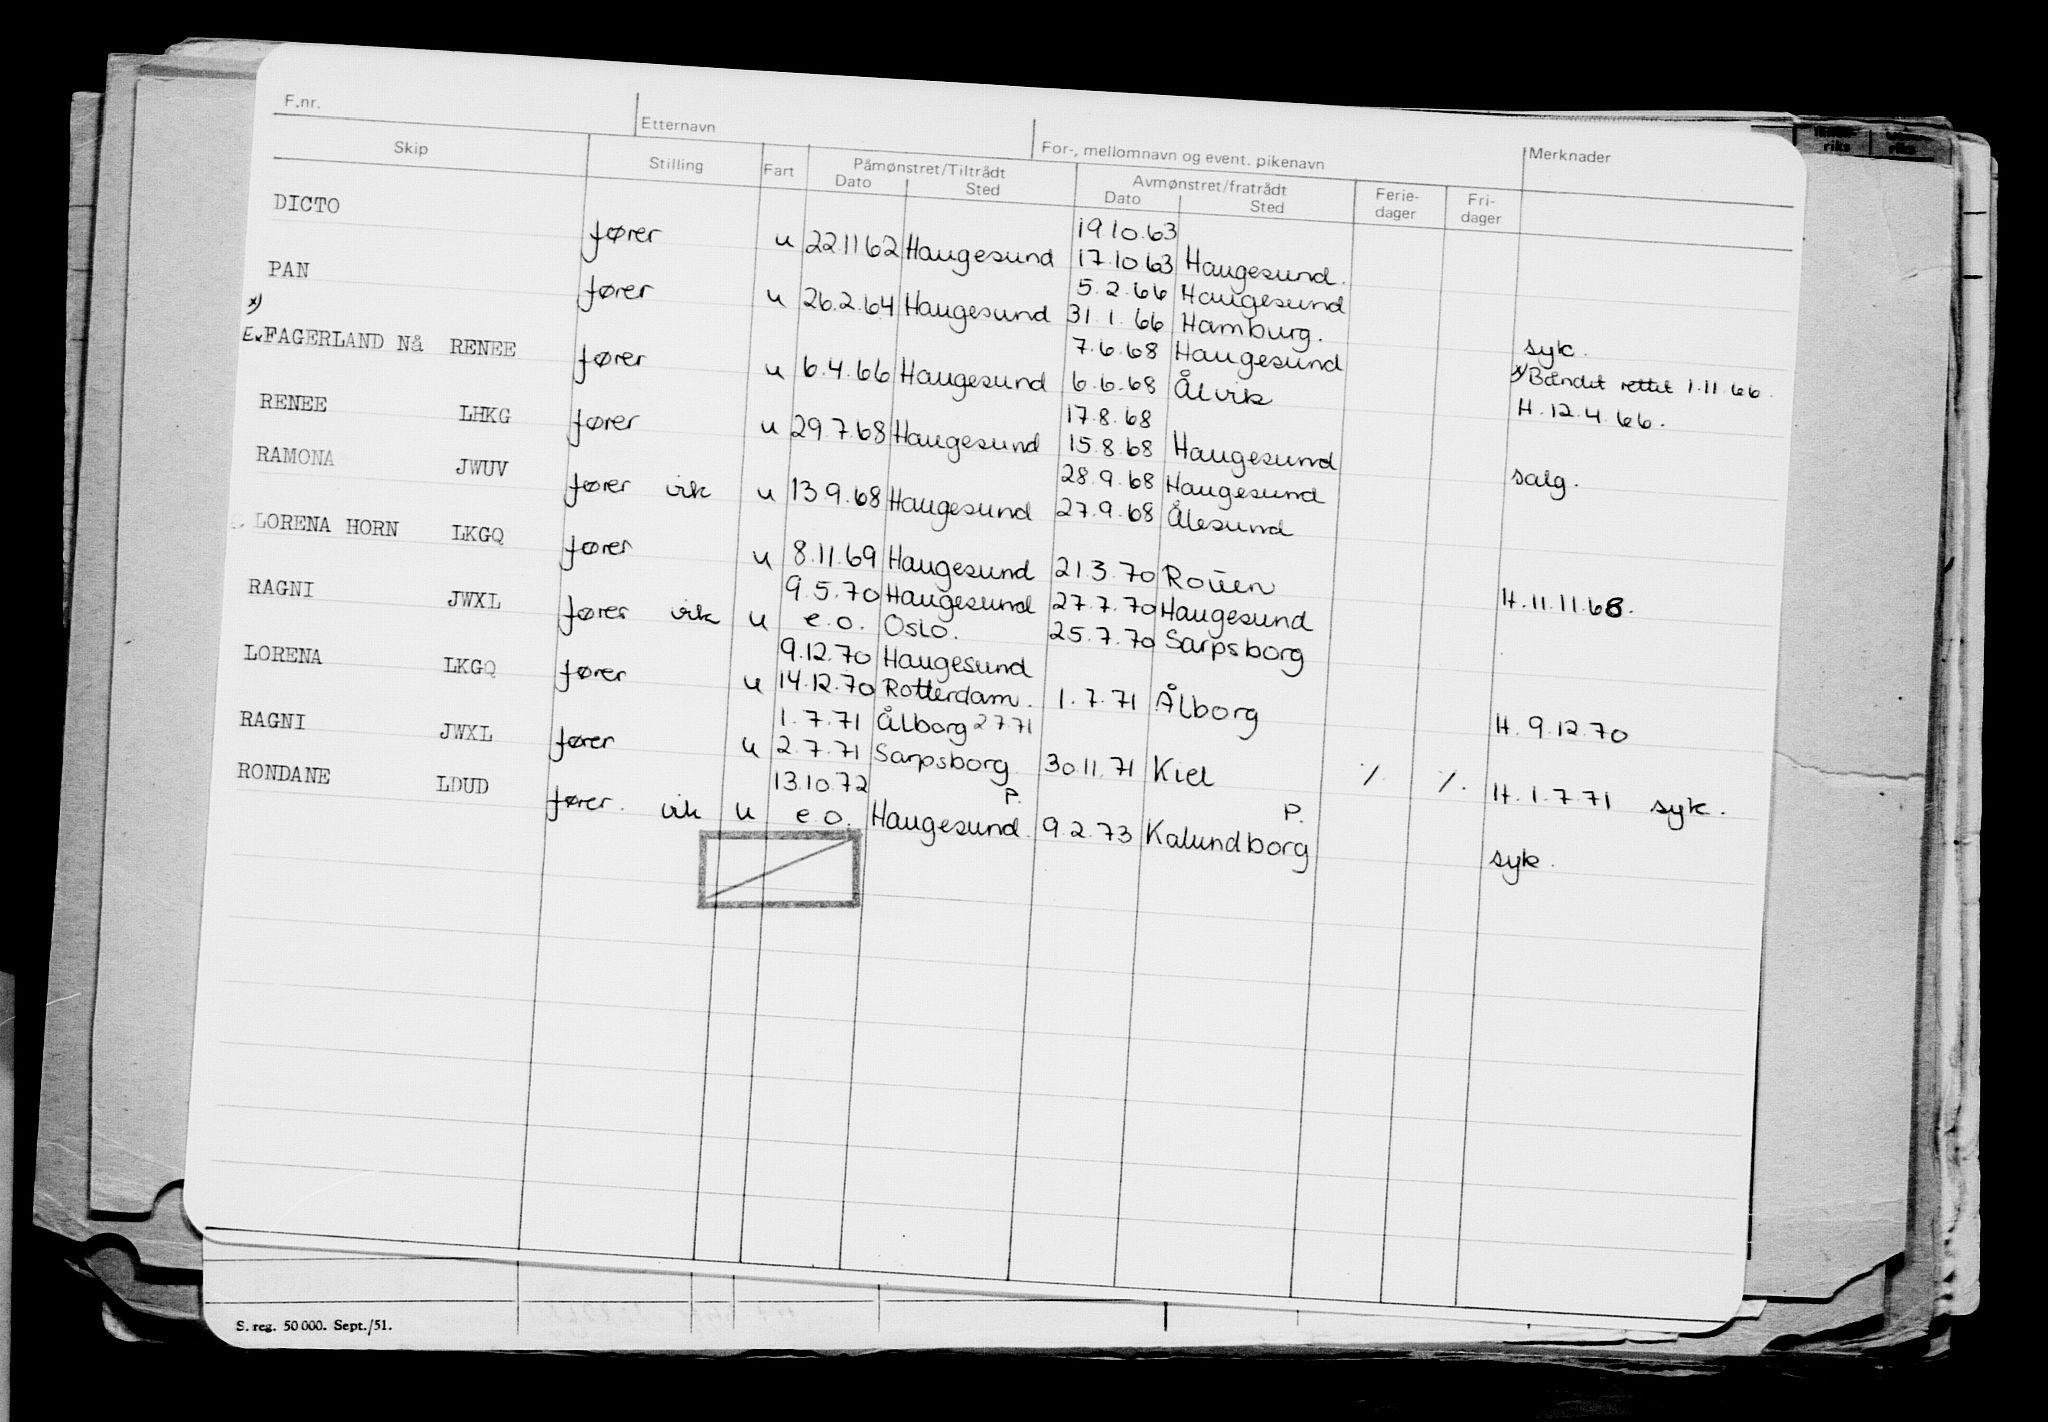 F.nr. Etternavn For-, mellomnavn og event. pikenavn Merknader
Skip Stilling Fart Påmønstret/Tiltrådt Avmønstret/fratrådt Ferie- Fri-
Dato Sted Dato Sted dager dager
19.10.63
DICTO fører u 22.11 62 Haugesund 17.10 63 Haugesund.
5.2.66 Haugesund
PAN fører u 26.2.64 Haugesund 31.1.66 Hamburg. syk.
x) 7.6.68 Haugesund x) Båndet rettet 1.11.66.
Ex FAGERLAND Nå RENEE fører u 6.4.66 Haugesund 6.6.68 Ålvik H.12.4.66.
17.8.68
RENEE LHKG fører u 29.7.68 Haugesund 15.8.68 Haugesund salg.
28.9.68 Haugesund
RAMONA JWUV fører vik u 13 9.68 Haugesund 27.9.68 Ålesund
LORENA HORN LKGQ fører u 8.11.69 Haugesund 21.3.70 Rouen H.11.11.68.
9.5.70 Haugesund 27.7.70 Haugesund
RAGNI JWXL fører vik u e.o. Oslo. 25.7.70 Sarpsborg
9.12.70 Haugesund
LORENA LKGQ fører u 14.12.70 Rotterdam. 1.7.71 Ålborg H. 9.12.70
1.7.71 Ålborg 2 7 71
RAGNI JWXL fører u 2.7.71 Sarpsborg 30.11.71 Kiel ./. ./. H.1.7.71 syk.
13.10.72 P. P.
RONDANE LDUD fører. vik u e.o. Haugesund. 9.2.73 Kalundborg syk.
S. reg. 50 000. Sept./51.